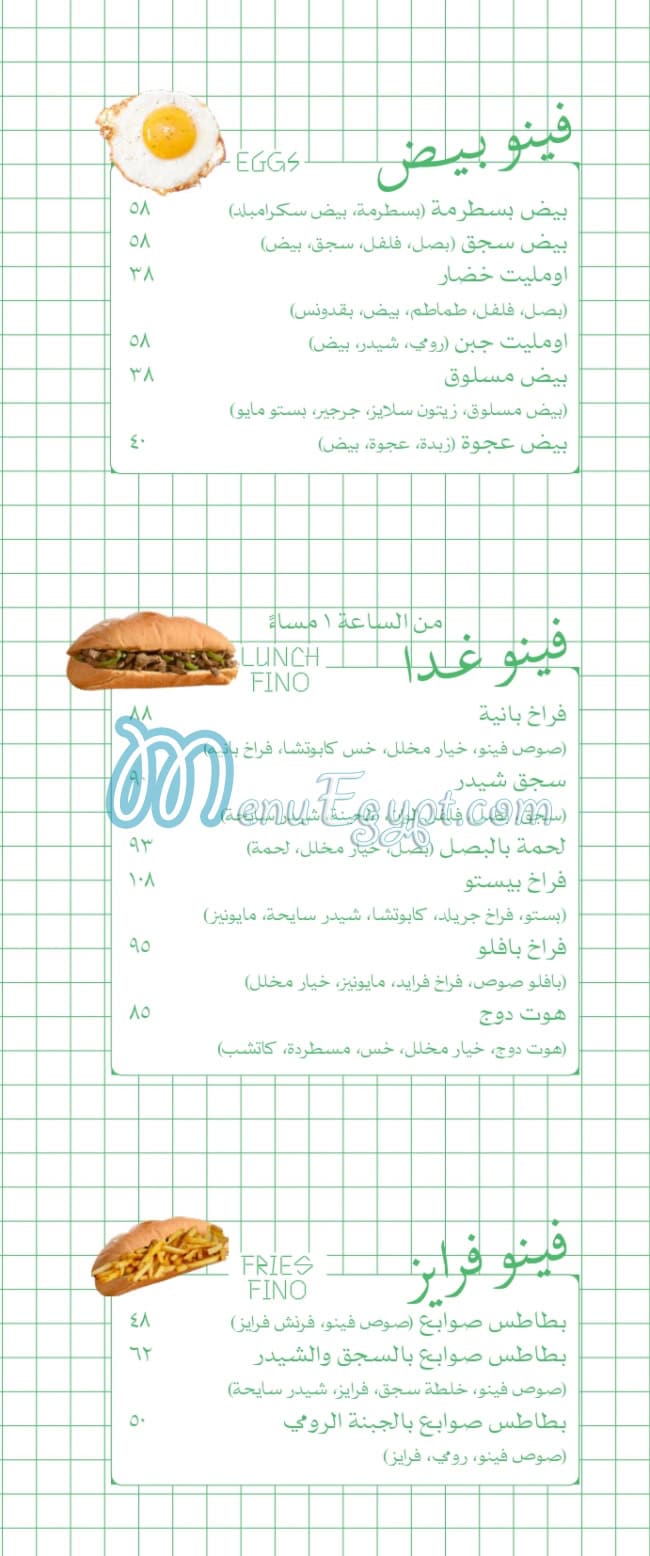 فينو بيض
EGGS
بيض بسطرمة (بسطرمة، بيض سكرامبلد) ٥٨
بيض سجق (بصل، فلفل، سجق، بيض) ٥٨
اومليت خضار ٣٨
(بصل، فلفل، طماطم، بيض، بقدونس)
اومليت جبن (رومي، شيدر، بيض) ٥٨
بيض مسلوق ٣٨
(بيض مسلوق، زيتون سلايز، جرجير، بستو مايو)
بيض عجوة (زبدة، عجوة، بيض) ٤٠
من الساعة ١ مساءً
فينو غدا
LUNCH
FINO
فراخ بانية ٨٨
(صوص فينو، خيار مخلل، خس كابوتشا، فراخ بانيه)
سجق شيدر ٩٠
MenuEgypt.com
(سجق، بصل، فلفل الوان، طحينة، شيدر سايحة)
لحمة بالبصل (بصل، خيار مخلل، لحمة) ٩٣
فراخ بيستو ١٠٨
(بستو، فراخ جريلد، كابوتشا، شيدر سايحة، مايونيز)
فراخ بافلو ٩٥
(بافلو صوص، فراخ فرايد، مايونيز، خيار مخلل)
هوت دوج ٨٥
(هوت دوج، خيار مخلل، خس، مسطردة، كاتشب)
فينو فرايز
FRIES
FINO
بطاطس صوابع (صوص فينو، فرنش فرايز) ٤٨
بطاطس صوابع بالسجق والشيدر ٦٢
(صوص فينو، خلطة سجق، فرايز، شيدر سايحة)
بطاطس صوابع بالجبنة الرومي ٥٠
(صوص فينو، رومي، فرايز)